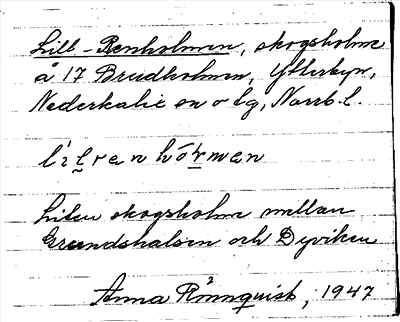 Lill-Renholmen, skogsholme
å 17 Brudholmen, Ytterbyn,
Nederkalix sn o lg, Norrb. l.
Liten skogsholme mellan
Grundshalsen och Dyviken
Anna Rönnquist, 1947